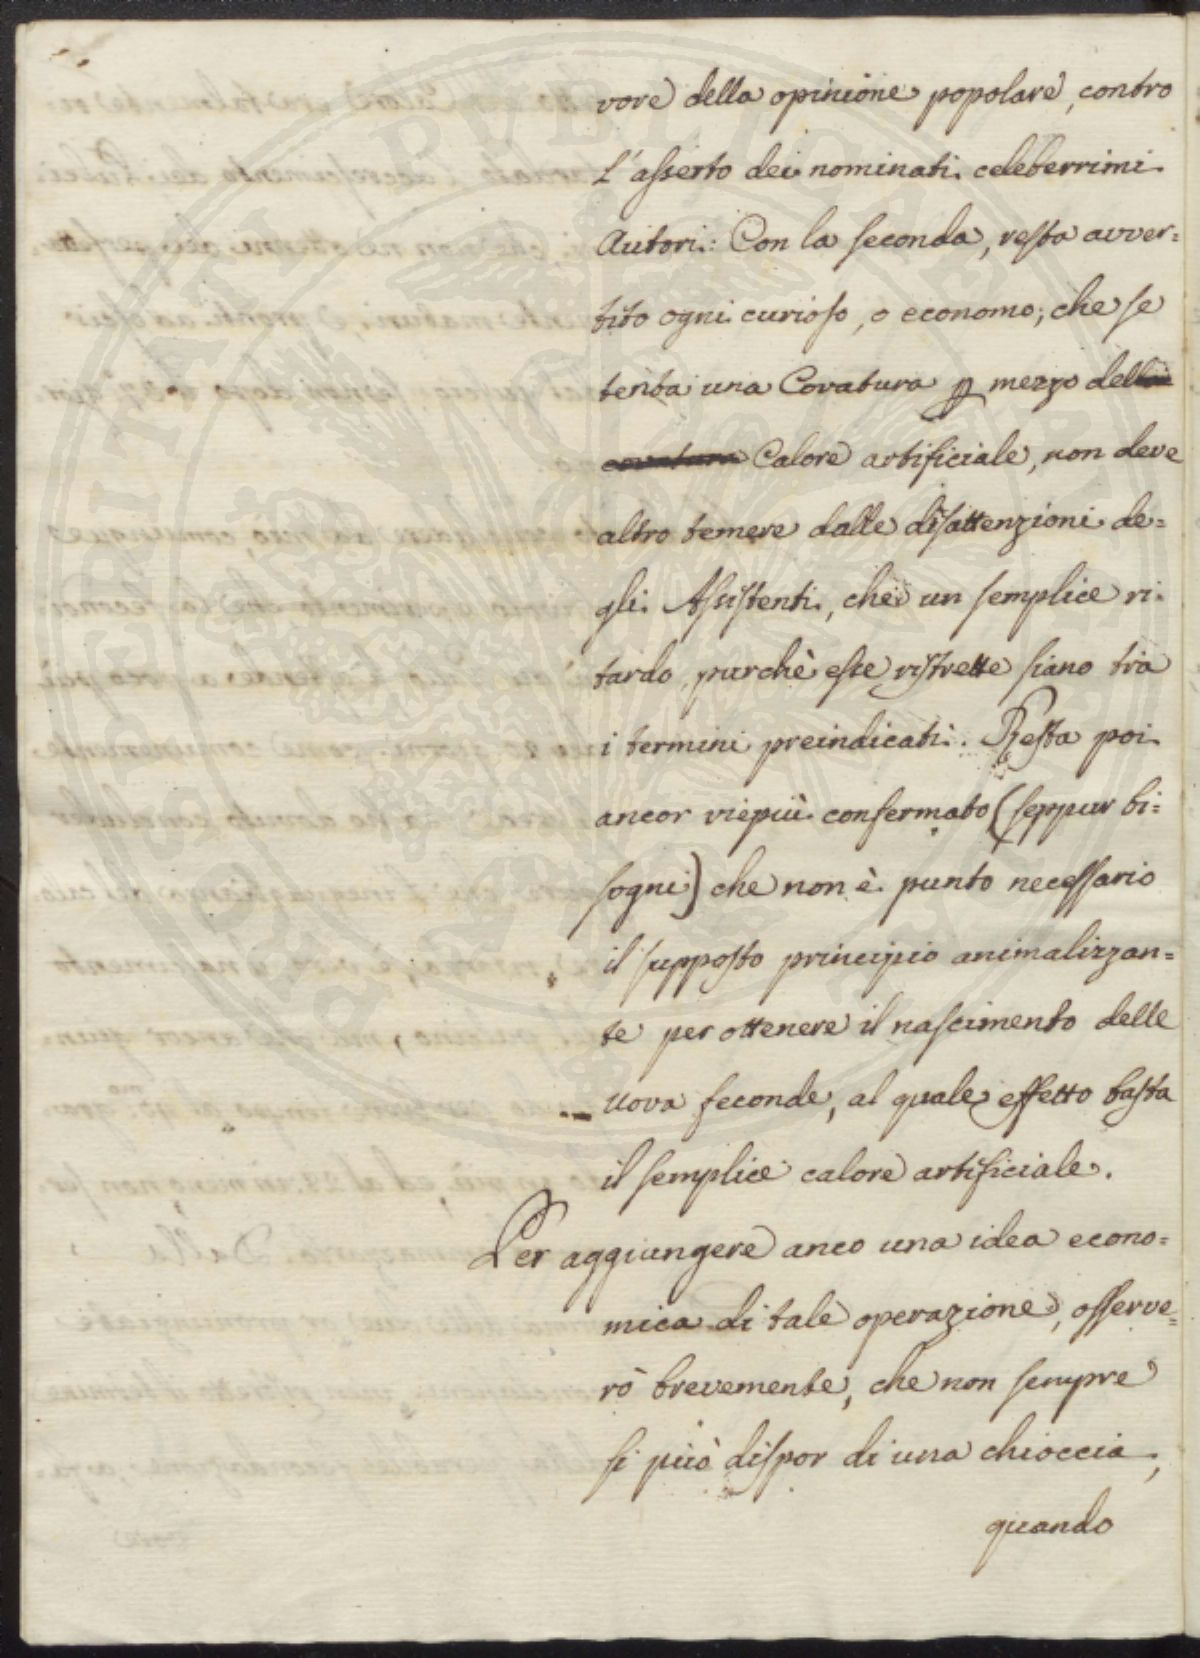 vore della opinione popolare, contro
l'asserto dei nominati celeberrimi
Autori: Con la seconda, resta avver=
tito ogni curioso, o economo; che se
tenta una Covatura p mezzo della
covatura Calore artificiale, non deve
altro temere dalle disattenzioni de=
gli Assistenti, che un semplice ri=
tardo, purchè esse ristrette siano tra
i termini preindicati. Resta poi
ancor viepiù confermato (seppur bi=
sogni) che non è punto necessario
il supposto principio animalizzan=
te per ottenere il nascimento delle
uova feconde, al quale effetto basta
il semplice calore artificiale.
Per aggiungere anco una idea econo=
mica di tale operazione, osserve=
rò brevemente, che non sempre
si può dispor di una chioccia,
quando